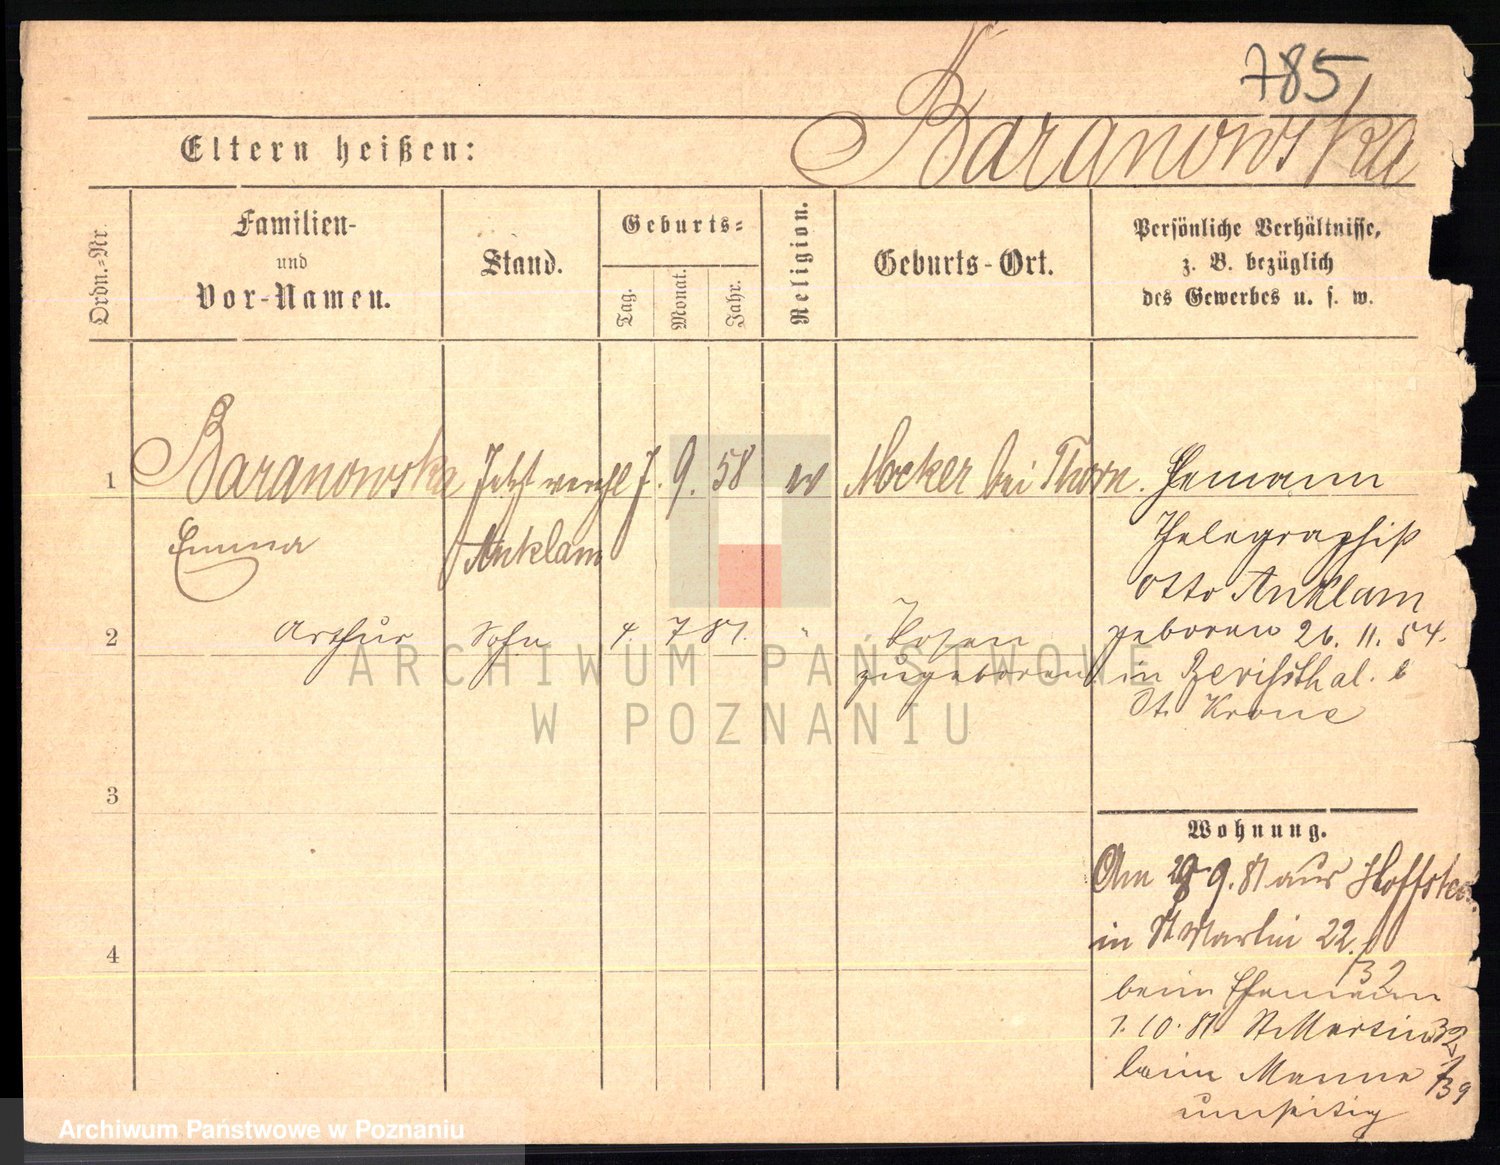 785
Baranowska
Eltern heißen:
Ordn.-Nr.
Familien-
und
Vor-Namen.
Stand.
Geburts-
Tag.
Monat.
Jahr.
Religion.
Geburts-Ort.
Persönliche Verhältnisse,
z. B. bezüglich
des Gewerbes u. s. w.
1 Baranowska Jetzt verehl 7. 9. 58 ev Mocker bei Thorn. Ehemann
Emma Anklam Thelegraphist
Otto Anklam
2 Arthur Sohn 4. 7 81. " Posen geboren 26. 11. 54.
zugeboren in
Dt. Krone
3
4
Wohnung.
Am 29 9. 81 aus
in St Martin 22.
32
beim Ehemann
1. 10. 81 St Martin 32
beim Manne
umseitig
ARCHIWUM PAŃSTWOWE
W POZNANIU
Archiwum Państwowe w Poznaniu